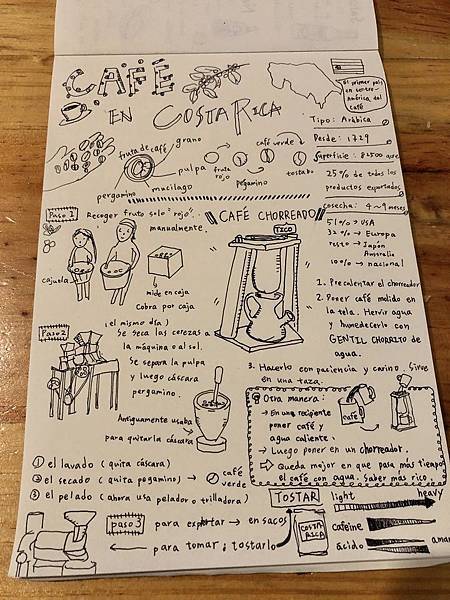 CAFÉ
EN COSTA RICA
El primer país
en centro-
américa del
café
Tipo: Arábica
Desde: 1729
Superficie: 82500
25% de todos los
productos exportados
cosecha: 4~9 meses
51% → USA
32% → Europa
resto → Japón
Australia
100% → nacional
fruta de café
grano
pulpa
mucilago
pergamino
café verde
fruta
rojo
pegamino
tostado
Paso 1
Recoger fruto solo "rojo".
manualmente.
cajuela
mide en caja
Cobra por caja
CAFÉ CHORREADO
TICO
1. Precalentar el chorreador
2. Poner café molido en
la tela. Hervir agua
y humedecerlo con
GENTIL CHORRITO de
agua.
3. Hacerlo con paciencia y carino. Sirve
en una taza.
Paso 2
(el mismo día)
Se seca las cerezas a
la máquina o al sol.
Se separa la pulpa
y luego cáscara
pergamino.
Antiguamente usaba
para quitarla cáscara
Otra manera:
→ En una recipiente
poner café y
agua caliente.
→ Luego poner en un chorreador.
Queda mejor en que pasa más tiempo
el café con agua. Saber mas rico.
café
① el lavado (quita cáscara)
② el secado (quita pegamino) →
café
verde
③ el pelado (ahora usa pelador o trilladora)
Paso 3
para exportar → en sacos
para tomar; tostarlo
COSTA
RICA
TOSTAR
light
heavy
cafeine
ácido